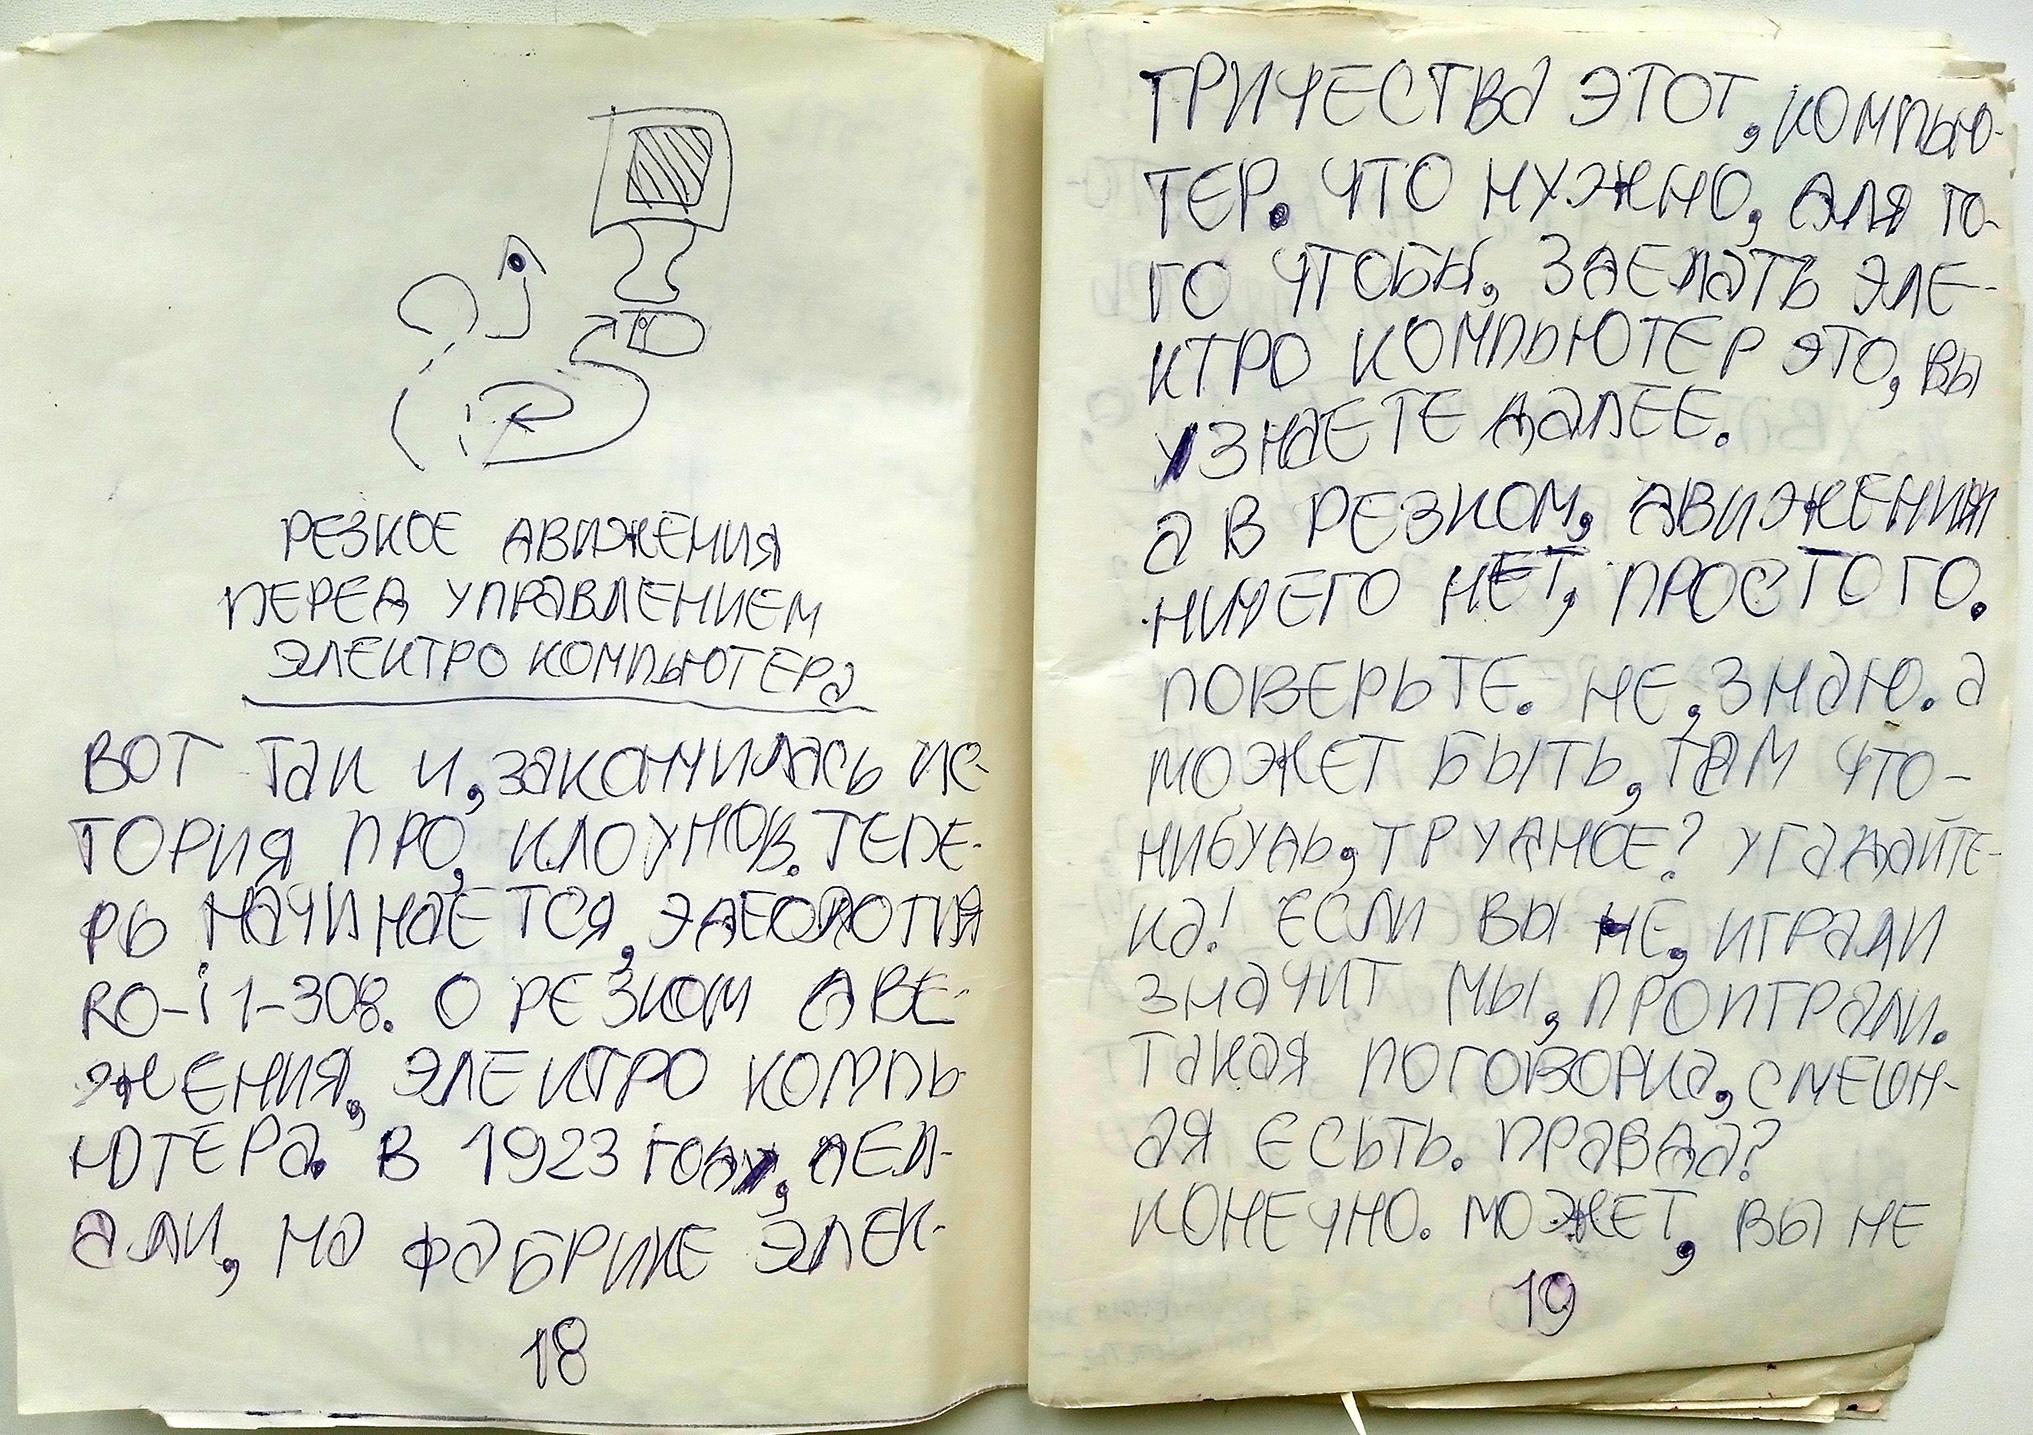 РЕЗКОЕ ДВИЖЕНИЯ
ПЕРЕД УПРАВЛЕНИЕМ
ЭЛЕКТРО КОМПЬЮТЕРА
ВОТ ТАК И, ЗАКОНЧИЛАСЬ ИС-
ТОРИЯ ПРО, КЛОУНОВ. ТЕПЕ-
РЬ НАЧИНАЕТСЯ,
RO-i1-308. О РЕЗКОМ ДВЕ-
ЖЕНИЯ, ЭЛЕКТРО КОМПЬ-
ЮТЕРА. В 1923 ГОДУ, ДЕЛ-
АЛИ, НА ФАБРИКЕ ЭЛЕК-
18
ТРИЧЕСТВА ЭТОТ, КОМПЬЮ-
ТЕР. ЧТО НУЖНО, ДЛЯ ТО-
ГО ЧТОБЫ, ЗДЕЛАТЬ ЭЛЕ-
КТРО КОМПЬЮТЕР ЭТО, ВЫ
УЗНАЕТЕ ДАЛЕЕ.
А В РЕЗКОМ, ДВИЖЕНИЯ
НИЧЕГО НЕТ, ПРОСТОГО.
ПОВЕРЬТЕ. НЕ, ЗНАЮ. А
МОЖЕТ БЫТЬ, ТАМ ЧТО-
НИБУДЬ, ТРУДНОЕ? УГАДАЙТЕ-
КА! ЕСЛИ ВЫ НЕ, ИГРАЛИ
ЗНАЧИТ МЫ, ПРОИГРАЛИ.
ТАКАЯ ПОГОВОРКА, СМЕШН-
АЯ ЕСЬТЬ. ПРАВДА?
КОНЕЧНО. МОЖЕТ, ВЫ НЕ
19